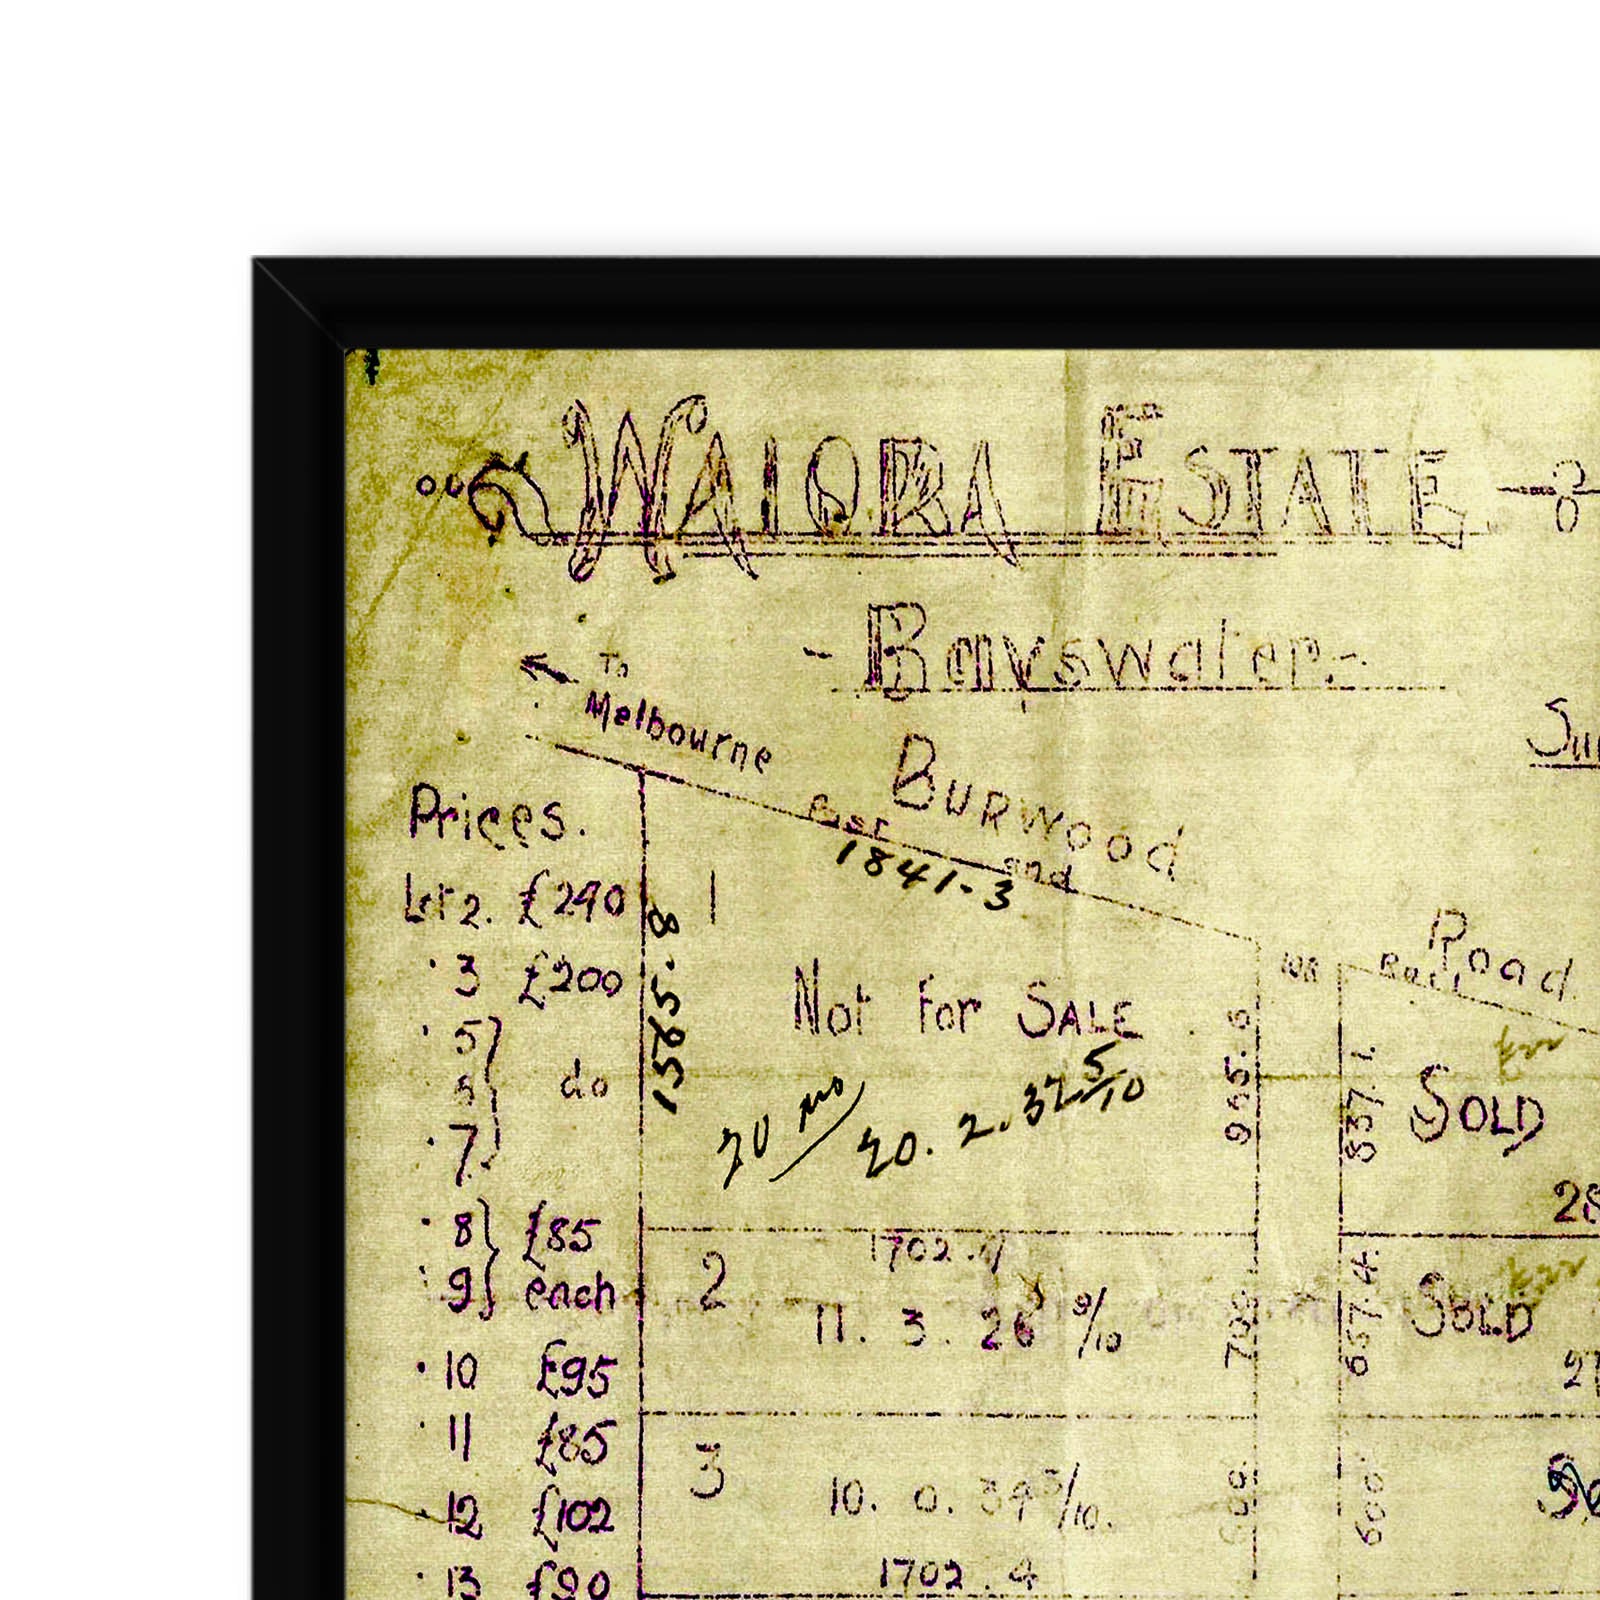 WAIORA ESTATE
- Bayswater -
To
Melbourne
BURWOOD
Road
1841-3
Prices.
Lot 2. £290
3 £200
5
7
do
8
9
£85
each
10 £95
11 £85
12 £102
13 £90
1
1565.8
Not For SALE
20. 2. 32 5/10
905.6
837.1.
SOLD
2
1702.4
11. 3. 26 9/10
700
657.4.
SOLD
3
10. 0. 39 3/10.
600
600
1702.4